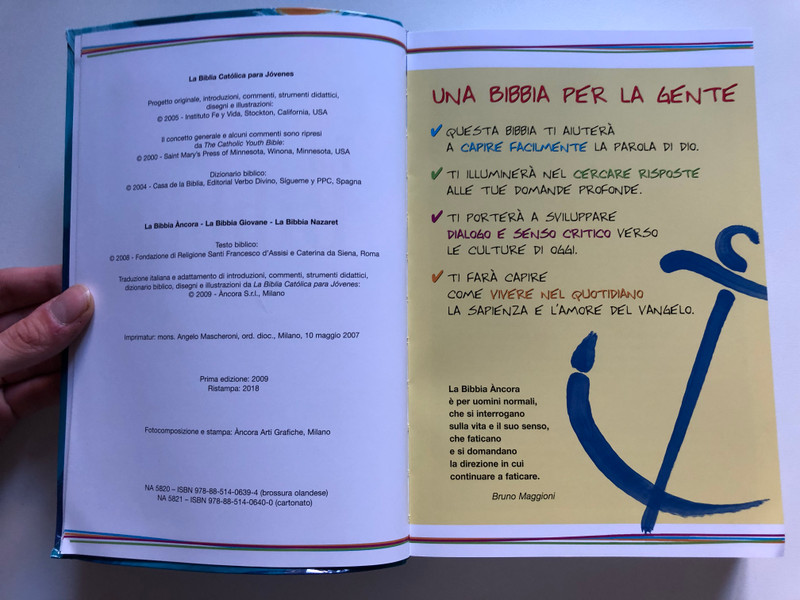 La Biblia Católica para Jóvenes
Progetto originale, introduzioni, commenti, strumenti didattici,
disegni e illustrazioni:
© 2005 - Instituto Fe y Vida, Stockton, California, USA
Il concetto generale e alcuni commenti sono ripresi
da The Catholic Youth Bible:
© 2000 - Saint Mary's Press of Minnesota, Winona, Minnesota, USA
Dizionario biblico:
© 2004 - Casa de la Biblia, Editorial Verbo Divino, Sígueme y PPC, Spagna
La Bibbia Àncora - La Bibbia Giovane - La Bibbia Nazaret
Testo biblico:
© 2008 - Fondazione di Religione Santi Francesco d'Assisi e Caterina da Siena, Roma
Traduzione italiana e adattamento di introduzioni, commenti, strumenti didattici,
dizionario biblico, disegni e illustrazioni da La Biblia Católica para Jóvenes:
© 2009 - Àncora S.r.l., Milano
Imprimatur: mons. Angelo Mascheroni, ord. dioc., Milano, 10 maggio 2007
Prima edizione: 2009
Ristampa: 2018
Fotocomposizione e stampa: Àncora Arti Grafiche, Milano
NA 5820 – ISBN 978-88-514-0639-4 (brossura olandese)
NA 5821 – ISBN 978-88-514-0640-0 (cartonato)
UNA BIBBIA PER LA GENTE
✔ QUESTA BIBBIA TI AIUTERÀ
A CAPIRE FACILMENTE LA PAROLA DI DIO.
✔ TI ILLUMINERÀ NEL CERCARE RISPOSTE
ALLE TUE DOMANDE PROFONDE.
✔ TI PORTERÀ A SVILUPPARE
DIALOGO E SENSO CRITICO VERSO
LE CULTURE DI OGGI.
✔ TI FARÀ CAPIRE
COME VIVERE NEL QUOTIDIANO
LA SAPIENZA E L'AMORE DEL VANGELO.
La Bibbia Àncora
è per uomini normali,
che si interrogano
sulla vita e il suo senso,
che faticano
e si domandano
la direzione in cui
continuare a faticare.
Bruno Maggioni